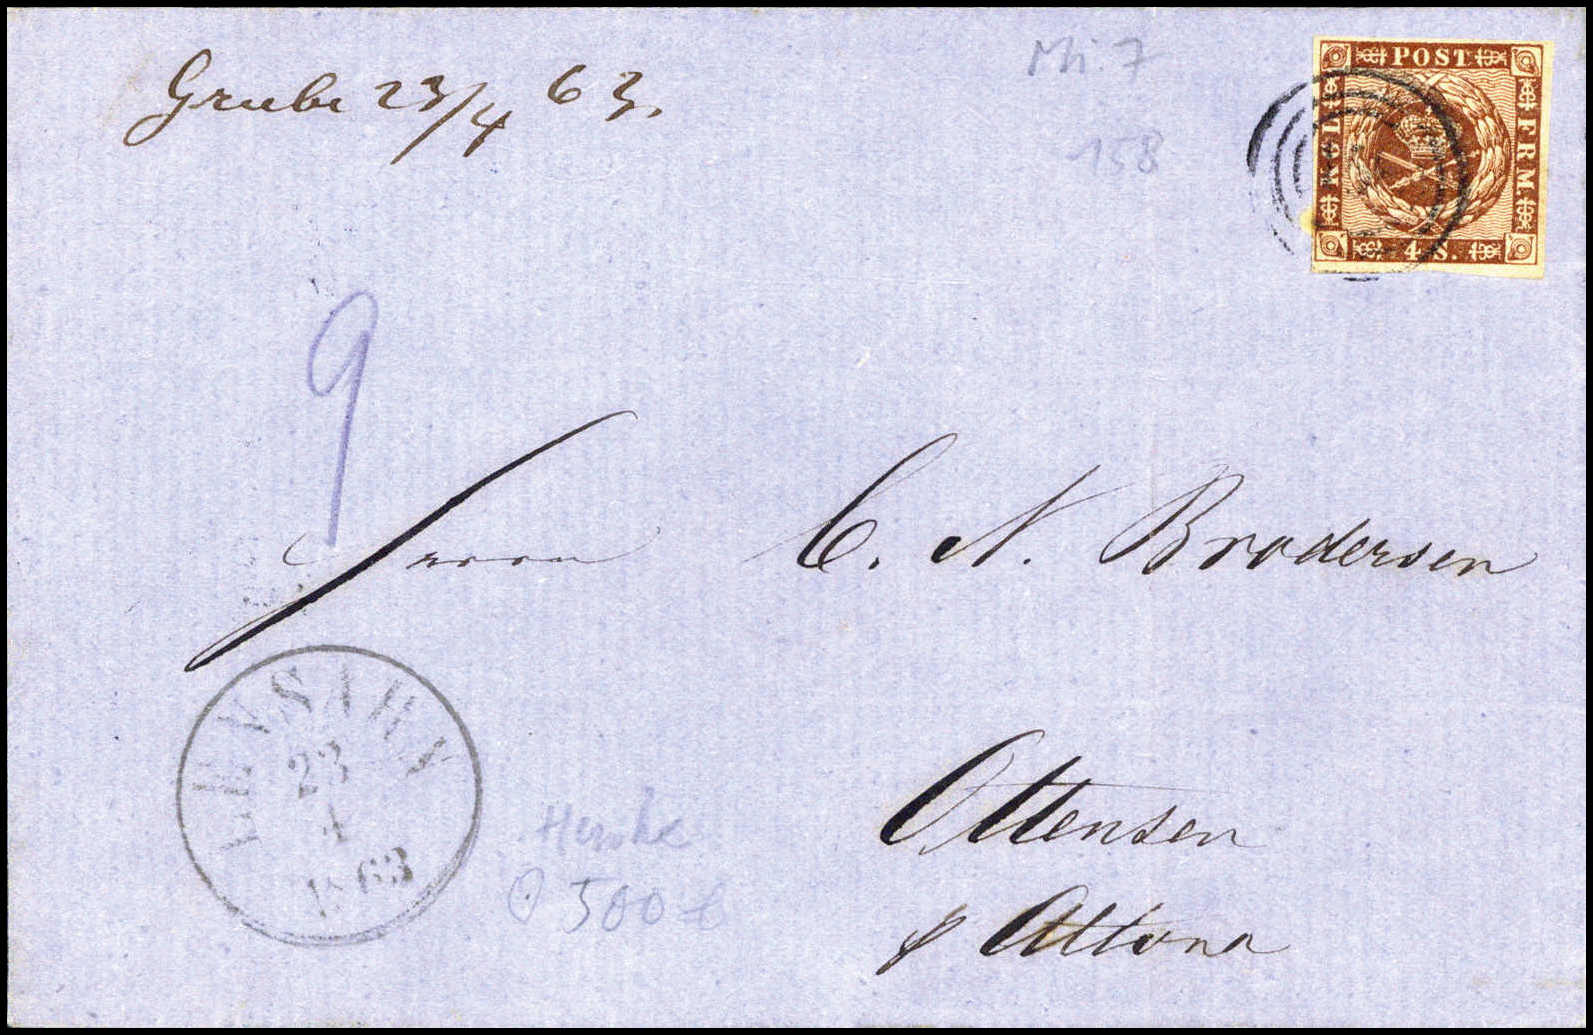 Grube 23/4 63.
Mi. 7
158
KGL POST FRM.
4 S.
9
Herrn C. N. Brodersen
LENSAHN
23
4
1863
Ottensen
p Altona
500